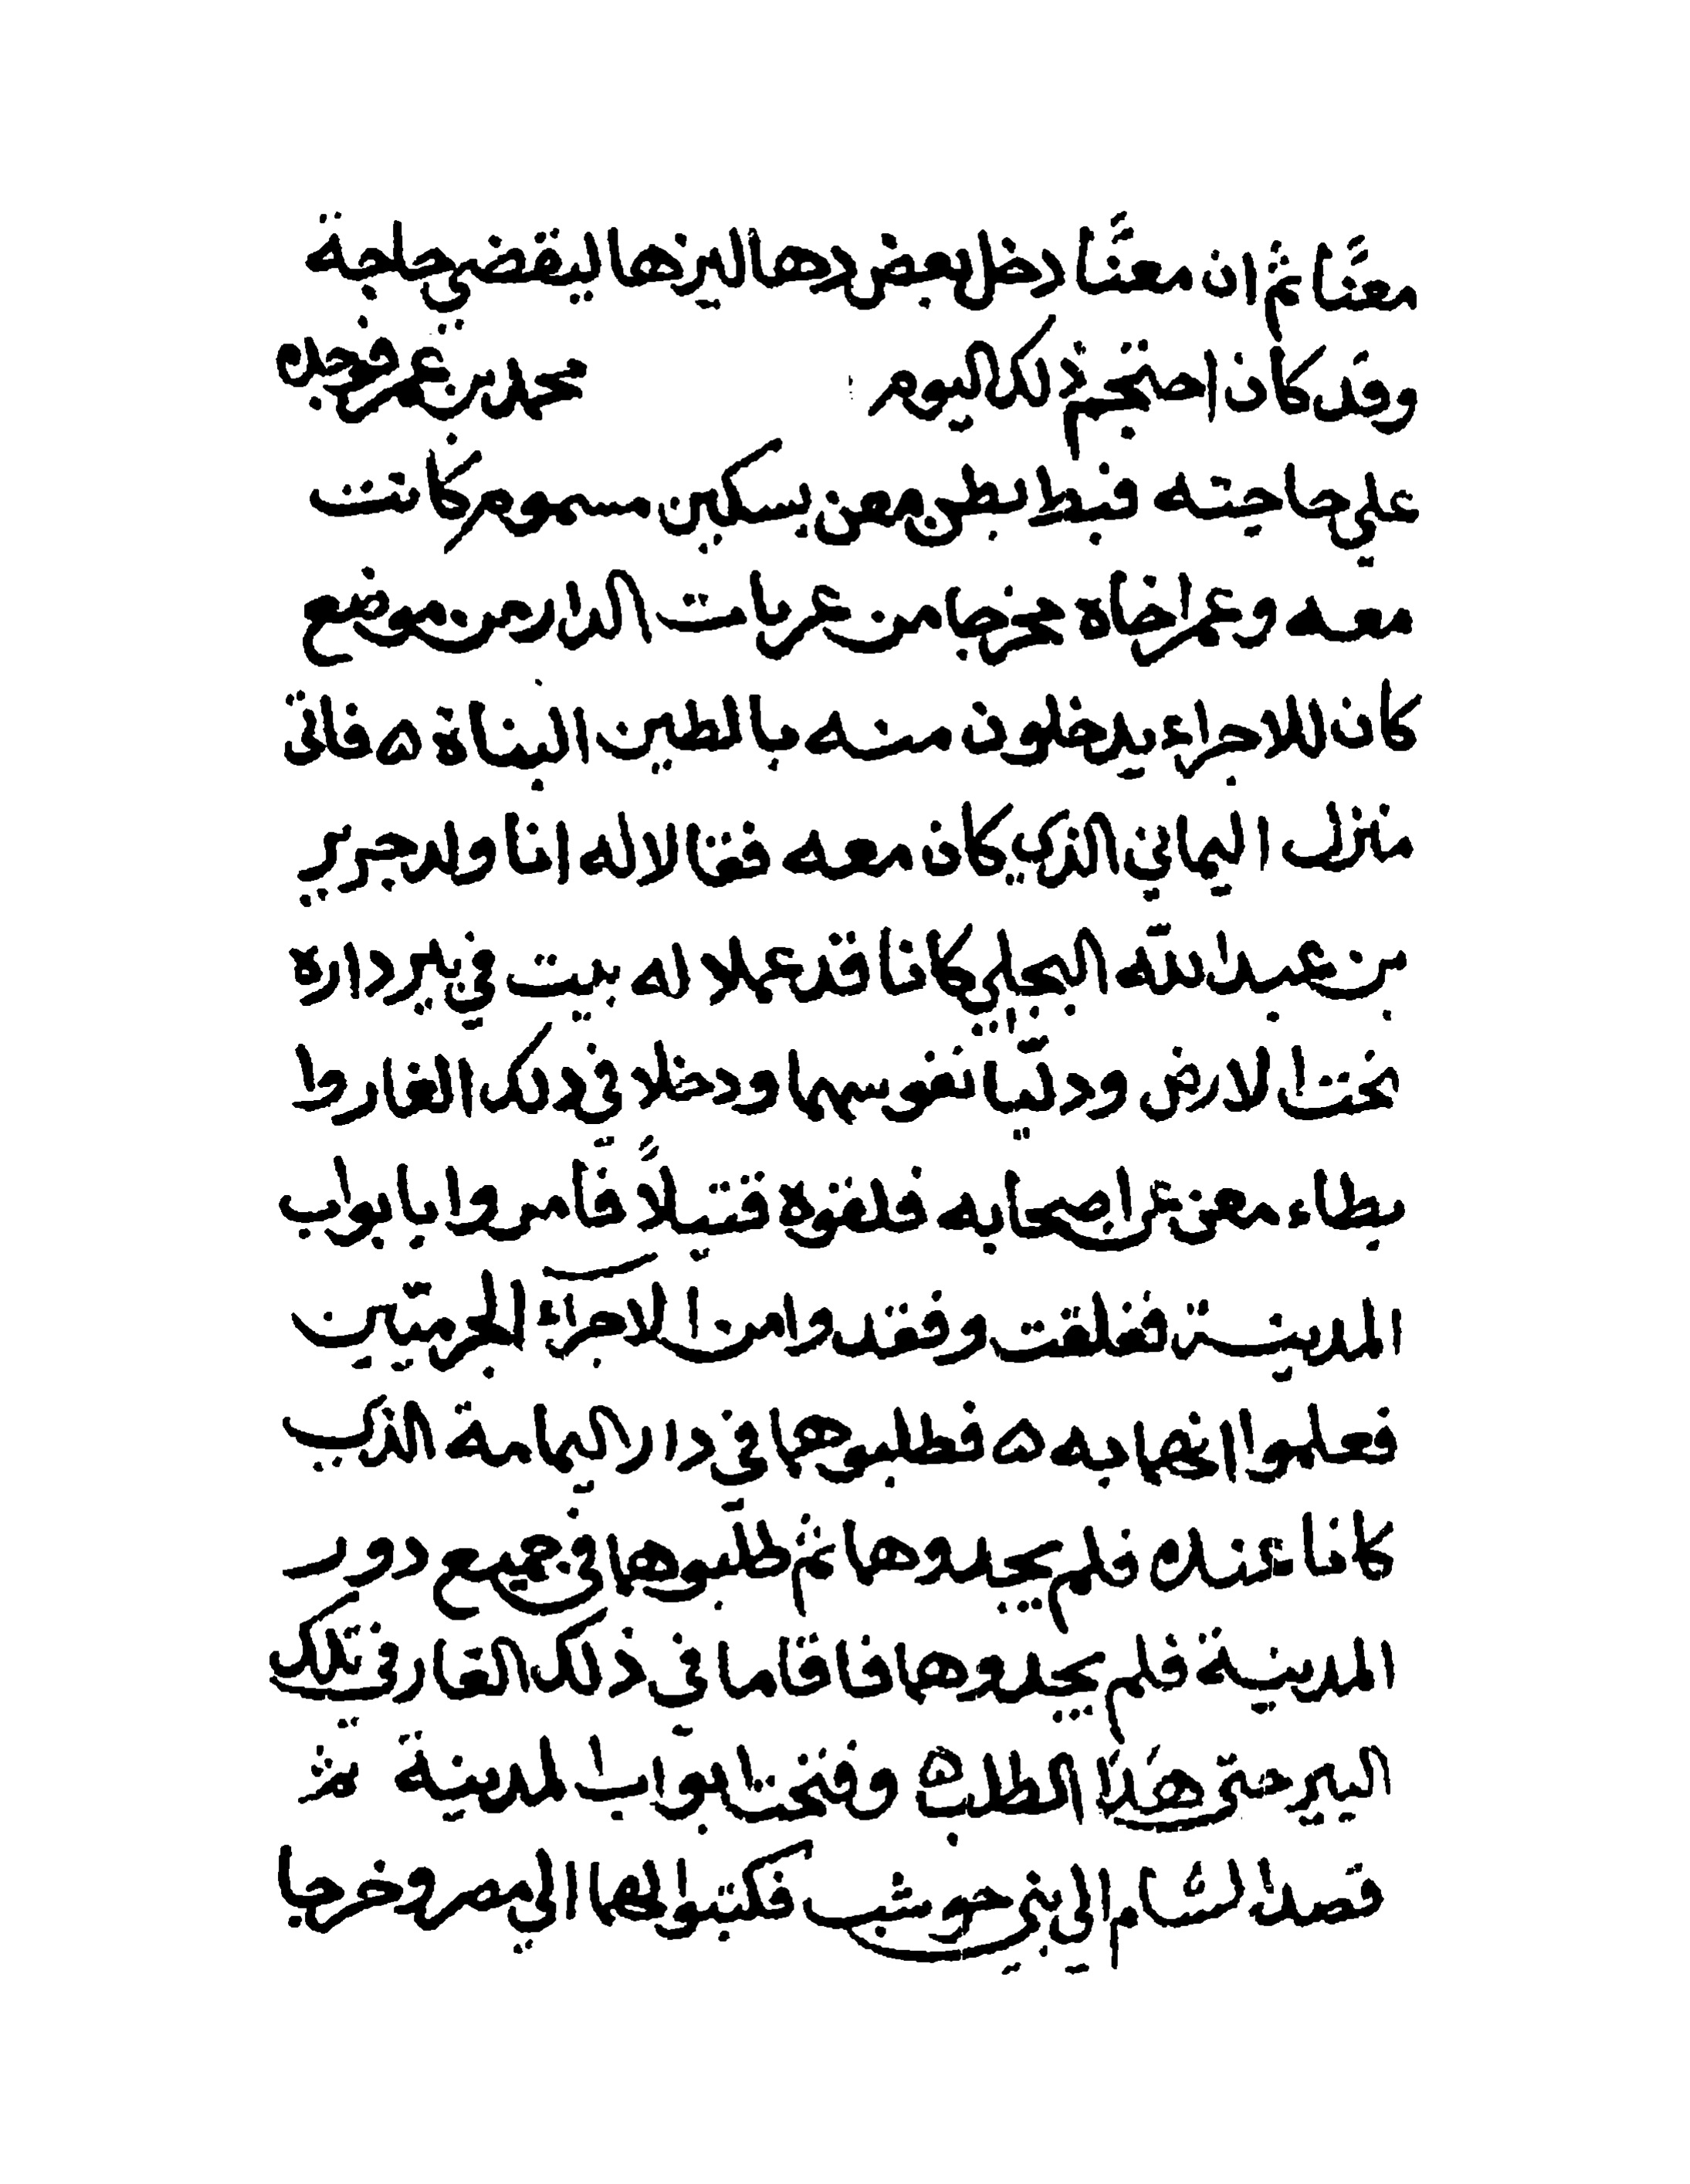 معنًا ثم ان معنًّا دخل بعض دهاليزها ليقضي حاجة
وقد كان احتجم ذلك اليوم محمد بن عمر فوجده
علي حاجته فبط بطن معن بسكين مسموم كانت
معه وعمر اخاه فخرجا من عربات الدار من موضع
كان للاجراء يدخلون منه بالطين البناة ۵ فاتى
منزل اليماني الذي كان معه فقالا له انا ولد جرير
بن عبد الله البجلي كانا قد عملا له بيت في بير داره
تحت الارض ودليا نفوسهما ودخلا في ذلك الغار وا
بطاء معن عن اصحابه فلقوه قتيلاً فامروا بابواب
المدينة فغلقت وفقدوا من الاجراء الجرميّين
فعلموا انهما به ۵ فطلبوهما في دار اليمامة الذي
كانا عنده فلم يجدوهما ثم طلّبوهما في جميع دور
المدينة فلم يجدوهما فاقاما في ذلك الغار في تلك
البير حتى هدا الطلب ۵ وفتحت ابواب المدينة ثم
قصدا الشام الي بني حوشب فكتبوا لهما الي مصر وخرجا